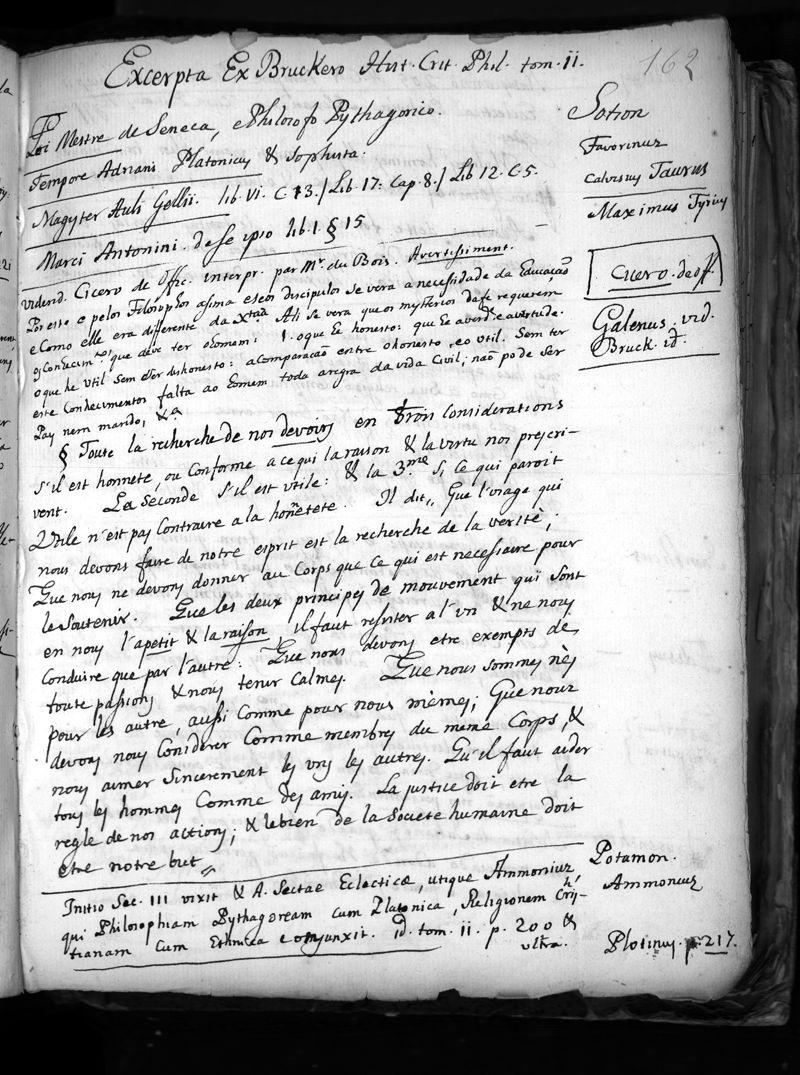 Excerpta Ex Bruckero Hist. Crit. Phil. tom. ii.
162
Foi Mestre de Seneca, e Philosofo Pythagorico.
Sotion
Tempore Adriani Platonicus & Sophista.
Favorinus
Magyster Auli Gellii. lib. VI. C. 13. / Lib. 17. Cap. 8. / Lib 12. C. 5.
Calvisius Taurus
Marci Antonini. de se ipso lib. 1. § 15
Maximus Tyrius
vidend. Cicero de Offic. interpr. par Mr. du Bois. Avertissiment.
Cicero. de off.
Por este e pelos Filosophos asima e seos discipulos se vera a necessidade da Educação
e Como elle era differente da Xtad Ali se vera que os mysterios da fe requerem
Galenus, vid.
os Conhecimtos que deve ter o homem: 1. o que he honesto: que he a verde. e a vertude.
Bruck. id.
o que he util sem ser dishonesto: a Comparacaõ entre o honesto, e o util. Sem ter
este Conhecimentos falta ao homem toda a regra da vida Civil; naõ pode ser
Pay nem marido, &a
§ Toute la recherche de nos devoirs en trois Considerations
s'il est honnete, ou Conforme a ce qui la raison & la vertu nos prescri-
vent. La Seconde s'il est utile: & la 3.me si, Ce qui paroit
Utile n'est pas Contraire a la honnetete. Il dit,, Que l'usage qui
nous devons faire de notre esprit est la recherche de la verité;
Que nous ne devons donner au Corps que Ce qui est necessaire pour
le soutenir. Que les deux principes de mouvement qui sont
en nous l'apetit & la raison il faut resister a l'un & ne nous
Conduire que par l'autre: Que nous devons etre exempts de
toute passions & nous tenir Calmes. Que nous sommes nés
pour les autre, aussi Comme pour nous mêmes; Que nous
devons nous Considerer Comme membres du même Corps, &
nous aimer Sincerement les uns les autres. Qu'il faut aider
tous les hommes Comme des amis. La justice doit etre la
regle de nos actions; & le bien de la Societé humaine doit
etre notre but,,
Initio Sec. III vixit & A. Sectae Eclecticæ, utique Ammonius
Potamon.
qui Philosophiam Pythagoream cum Platonica, Religionem Chris-
Ammonius
tianam Cum Ethnica Conjunxit. id. tom. II. p. 200 &
ultra.
Plotinus. p. 217.